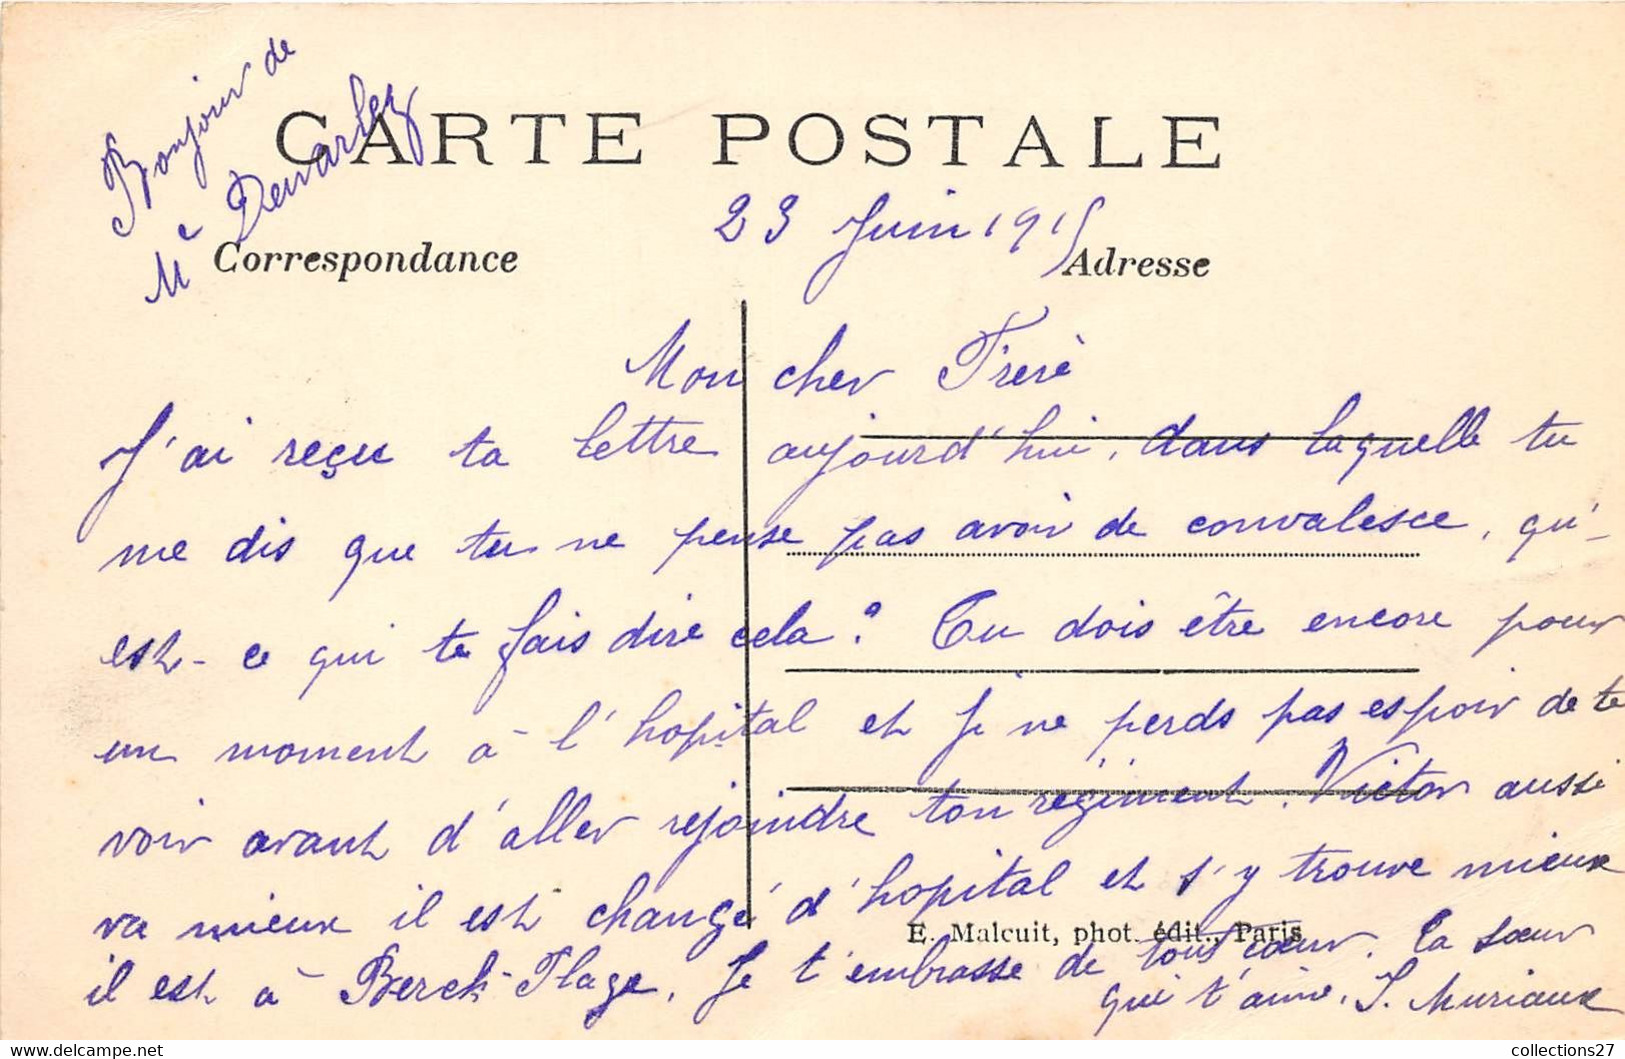 Bonjour de
Me Dewarlez
CARTE POSTALE
23 Juin 1915
Correspondance
Adresse
Mon cher Frère
J'ai reçu ta lettre aujourd'hui, dans laquelle tu
me dis que tu ne pense pas avoir de convalesce, qu'-
est-ce qui te fais dire cela? Tu dois être encore pour
un moment à l'hopital et je ne perds pas espoir de te
voir avant d'aller rejoindre ton régiment. Victor aussi
va mieux il est changé d'hopital et s'y trouve mieux
E. Malcuit, phot. édit., Paris
il est à Berck-Plage. Je t'embrasse de tout cœur. Ta sœur
qui t'aime, J. Muriaux
collections27